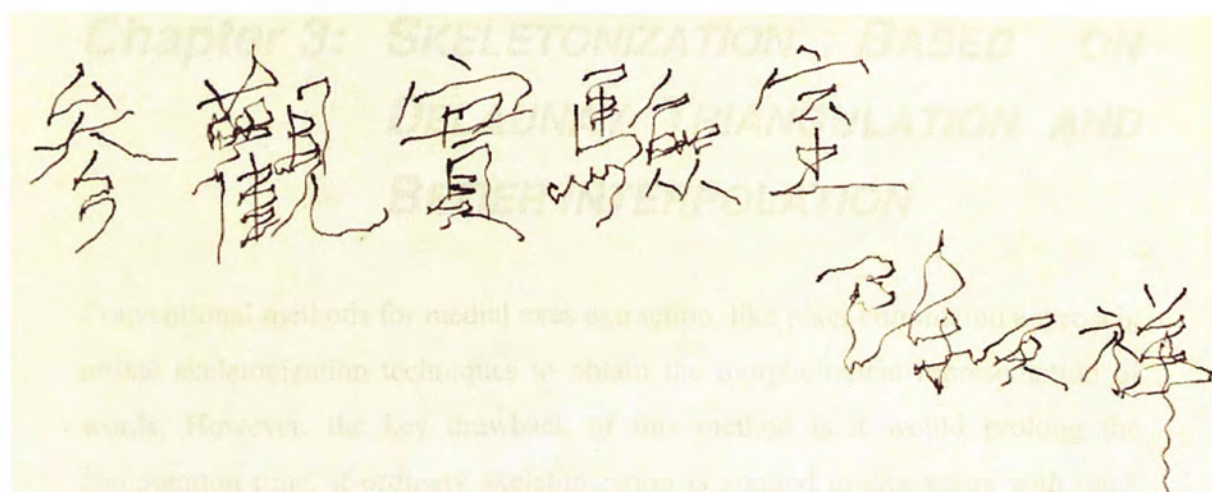 Chapter 3: SKELETONIZATION BASED ON
DELAUNAY TRIANGULATION AND
BEZIER INTERPOLATION
參觀實驗室
Conventional methods for medial axis extraction, like pixel
utilize skeletonization techniques to obtain the morphological representation of
words. However, the key drawback of this method is it would prolong the
computation time, if ordinary skeletonization is applied to characters with thick